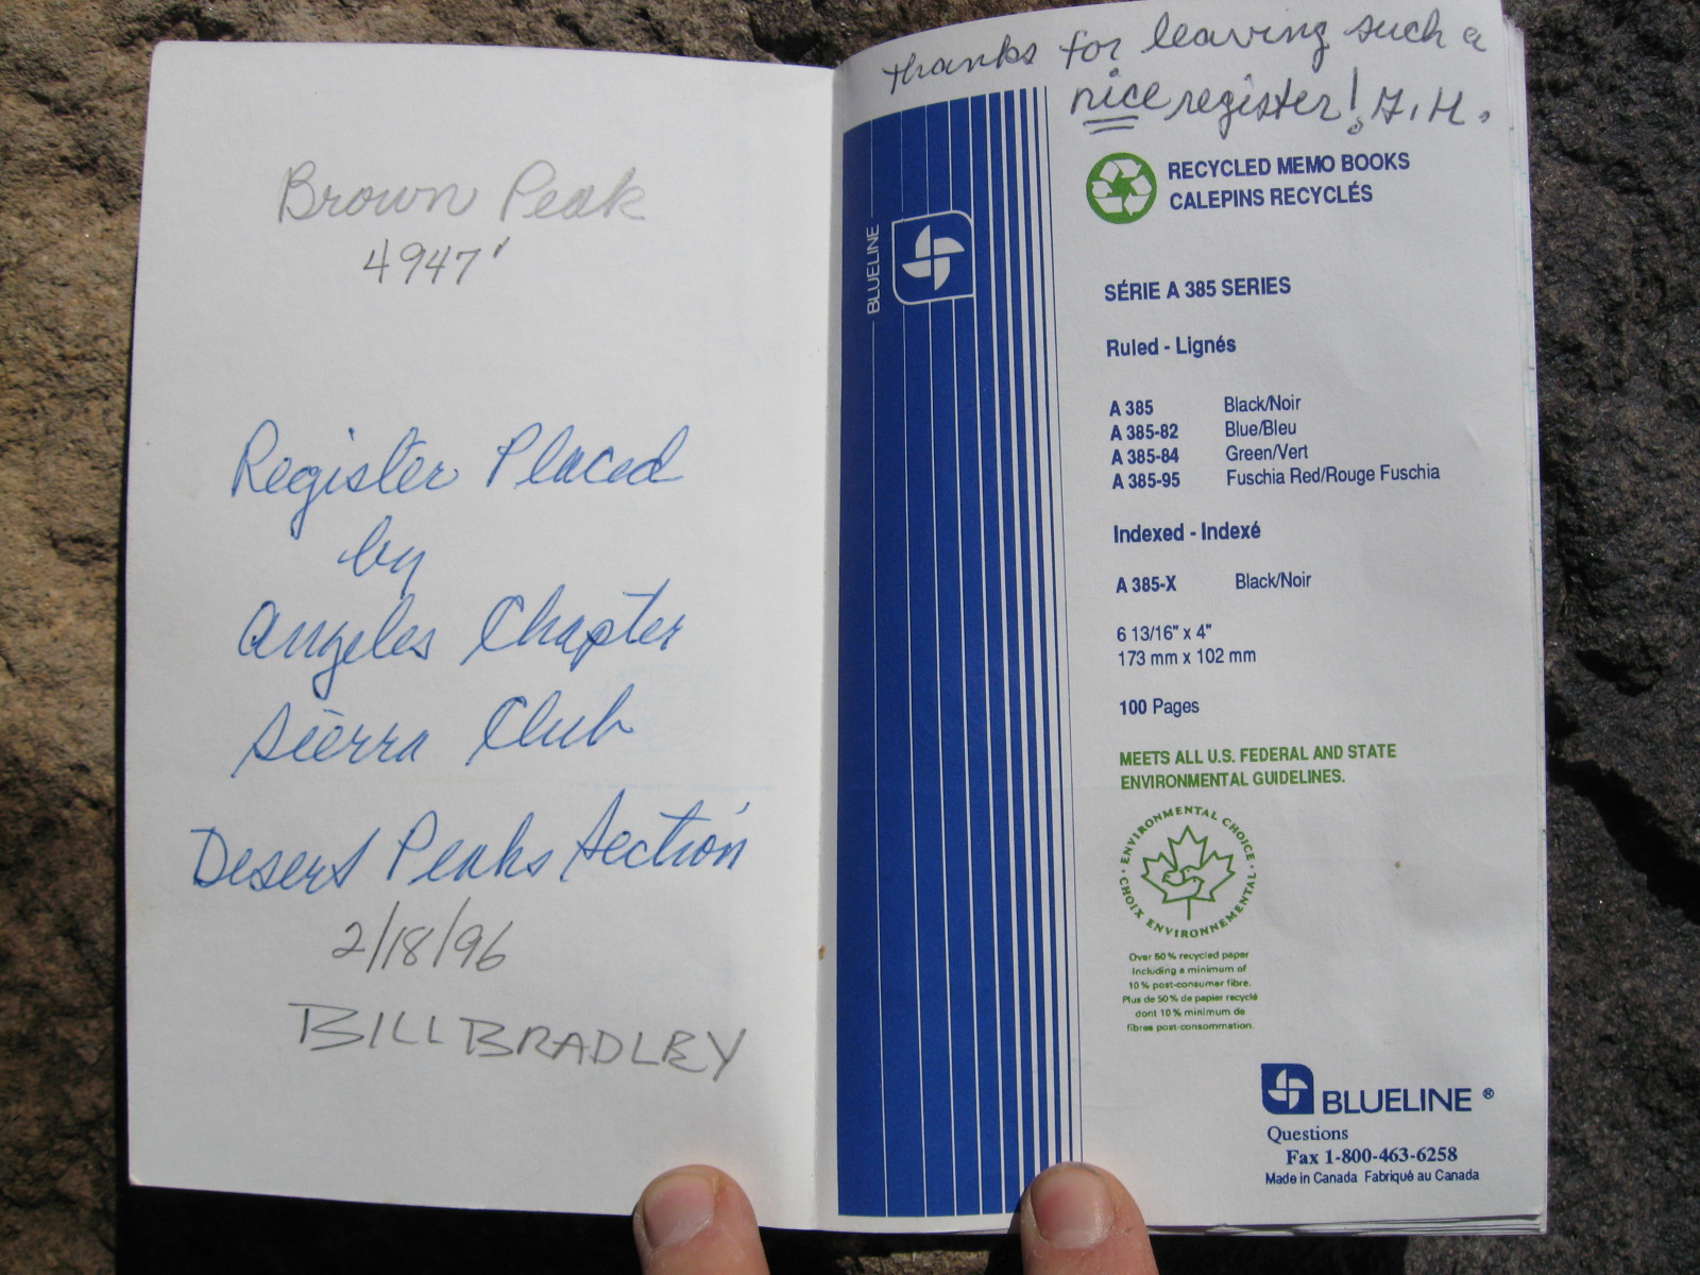 Brown Peak
4947'
Register Placed
by
Angeles Chapter
Sierra Club
Desert Peaks Section
2/18/96
BILL BRADLEY
Thanks for leaving such a
nice register! G.H.
BLUELINE
RECYCLED MEMO BOOKS
CALEPINS RECYCLÉS
SÉRIE A 385 SERIES
Ruled - Lignés
A 385 Black/Noir
A 385-82 Blue/Bleu
A 385-84 Green/Vert
A 385-95 Fuschia Red/Rouge Fuschia
Indexed - Indexé
A 385-X Black/Noir
6 13/16" x 4"
173 mm x 102 mm
100 Pages
MEETS ALL U.S. FEDERAL AND STATE
ENVIRONMENTAL GUIDELINES.
ENVIRONMENTAL CHOICE
CHOIX ENVIRONNEMENTAL
Over 50% recycled paper
including a minimum of
10% post-consumer fibre.
Plus de 50% de papier recyclé
dont 10% minimum de
fibres post-consommation.
BLUELINE ®
Questions
Fax 1-800-463-6258
Made in Canada Fabriqué au Canada